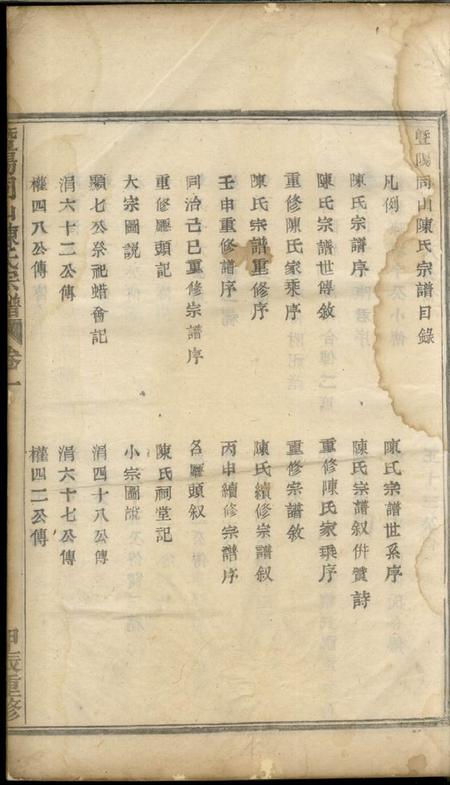 暨陽同山陳氏宗譜目錄
凡例
陳氏宗譜世系序
陳氏宗譜序
陳氏宗譜叙併贊詩
陳氏宗譜世傳敘
重修陳氏家乘序
重修陳氏家乘序
重修宗譜敘
陳氏宗譜重修序
陳氏續修宗譜叙
壬申重修譜序
丙申續修宗譜序
同治己巳重修宗譜序
各廳頭叙
重修廳頭記
陳氏祠堂記
大宗圖説
小宗圖説
顯七公祭祀蜡會記
涓四十八公傳
涓六十二公傳
涓六十七公傳
權四八公傳
權四二公傳
暨陽同山陳氏宗譜 卷一 甲辰重修